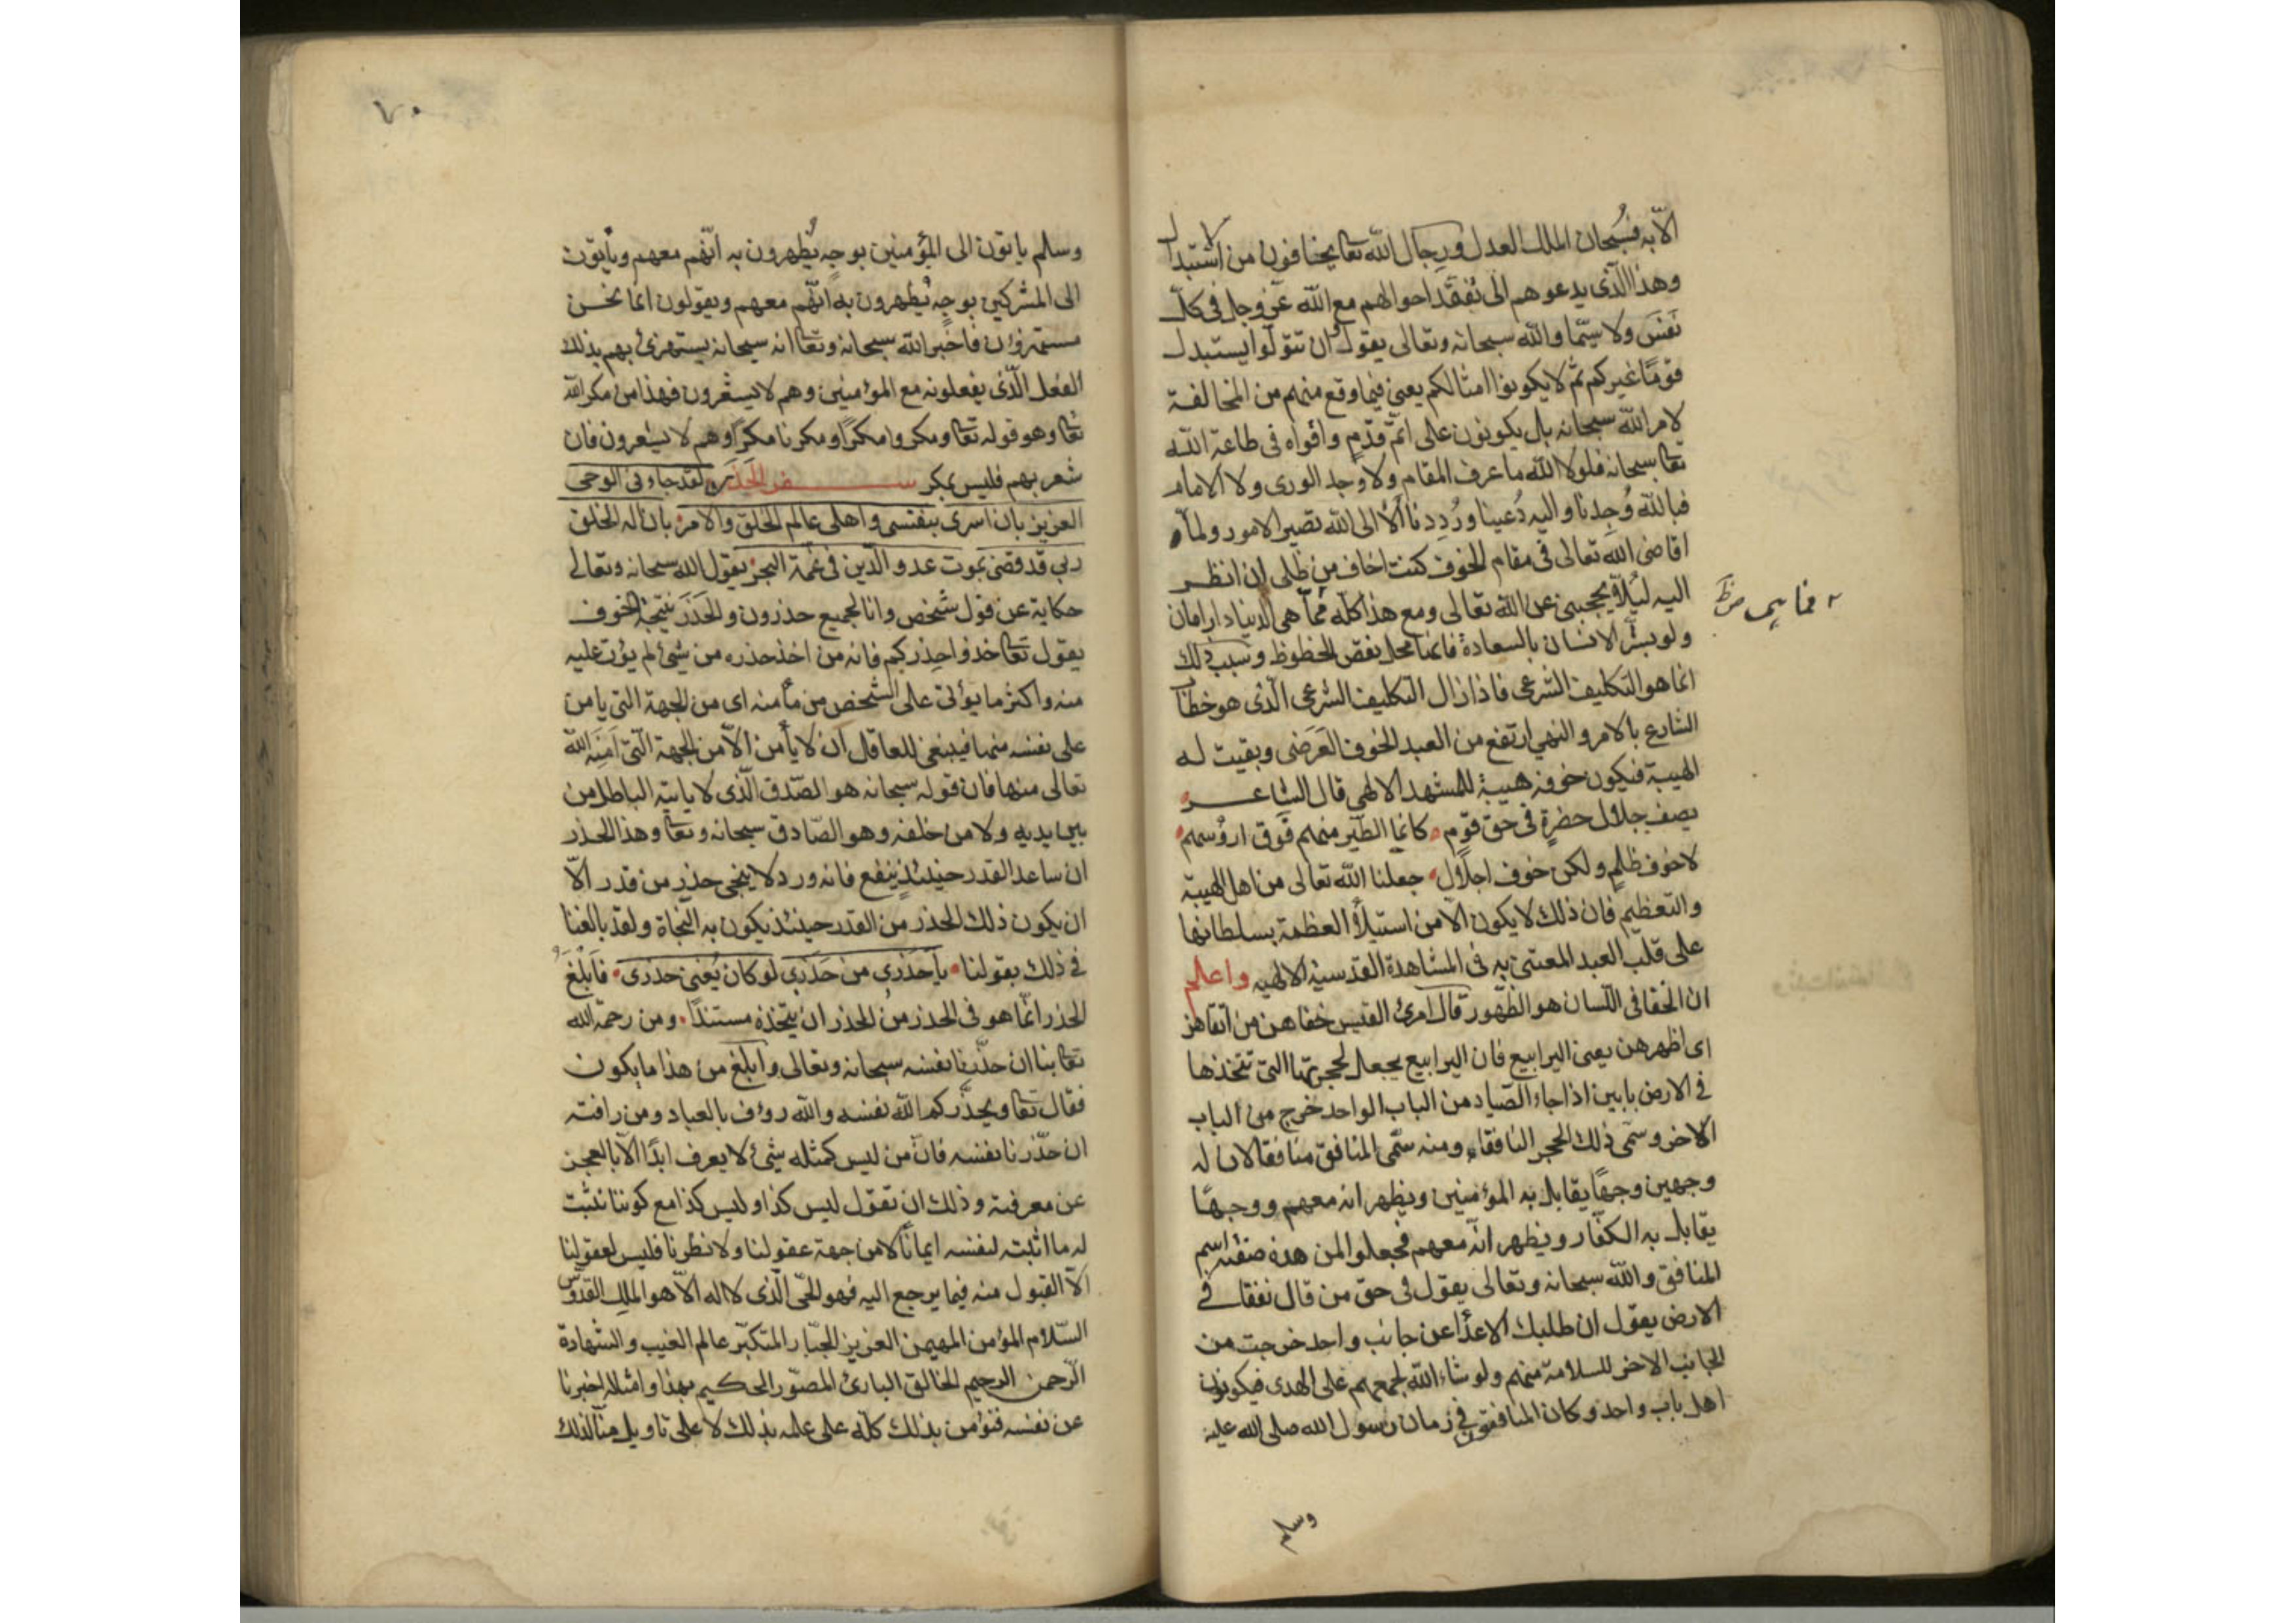 الا به فسُبحان الملك العدل ورجال الله تعا يخافون من اشتبدال
وهذا الّذى يدعوهم الى تفقّد احوالهم مع الله عزّ وجلّ فى كلّ
نفسَ ولا سيّما والله سبحانه وتعالى يقول ان تتولّوا يستبدل
قومًا غيركم ثمّ لا يكونوا امثالكم يعنى فيما وقع منهم من المخالفة
لامر الله سبحانه بل يكونون على اتمّ قدَمٍ واقواه فى طاعة الله
تعا سبحانه فلولا الله ما عرف المقام ولا وجد الورى ولا الامام
فبالله وُجدنا واليه دُعينا ورُددنا ألا الى الله تصير الامور ولمّا
اقامنى الله تعالى فى مقام الخوف كنت اخاف من ظلى ان انظر
اليه ليُلاّ يحجبنى عن الله تعالى ومع هذا كلّه فمّا هى الدنيا دار امان
ولو بُشّر الانسان بالسعادة فانما محل نقص الحظوظ وسبب ذلك
انما هو التكليف الشرعى فاذا زال التكليف الشرعى الّذى هو خطاب
الشارع بالامر والنهى ارتفع من العبد الخوف العَرَضى وبقيت له
الهيبة فيكون خوفه هيبة للمشهد الالهى قال الشاعر
يصف جلال حضرةٍ فى حق قوم كانما الطّير منهم فوق ارؤسهم
لا خوف ظلمٍ ولكن خوف اجلال جعلنا الله تعالى من اهل الهيبة
والتعظيم فان ذلك لا يكون الّا من استيلأ العظمة بسلطانها
على قلب العبد المعتنى به فى المشاهدة القدسية الالهيه واعلم
ان الخفا فى اللّسان هو الظّهور قال امرئ القيس خفاهن من انفاقهن
اى اظهرهن يعنى اليرابيع فان اليرابيع يجعل لحجرتها التى تتخذها
فى الارض بابين اذا جاء الصّياد من الباب الواحد خرج من الباب
الاخر وسمّى ذلك الحجر النافقاء ومنه سمّى المنافق منافقا لان له
وجهين وجهًا يقابل به المؤمنين ويظهر انه معهم ووجهًا
يقابل به الكفّار ويظهر انّه معهم فجعلوا لمن هذه صفته اسم
المنافق والله سبحانه وتعالى يقول فى حق من قال نفقا فى
الارض يقول ان طلبك الاعدأ عن جانب واحد خرجت من
الجانب الاخر للسلامة منهم ولو شاء الله لجمعهم على الهدى فيكونون
اهل باب واحد وكان المنافقون فى زمان رسول الله صلى الله عليه
وسلم
فما هى
٧٠
وسلم ياتون الى المؤمنين بوجهٍ يُظهرون به انّهم معهم ويأتون
الى المشركين بوجهٍ يُظهرون به انّهم معهم ويقولون انما نحن
مستهزؤن فاخبر الله سبحانه وتعا انه سبحانه يستهزئ بهم بذلك
الفعل الّذى يفعلونه مع المؤمنين وهم لا يشعرون فهذا من مكر الله
تعا وهو قوله تعا ومكروا مكرًا ومكرنا مكرًا وهم لا يشعرون فان
شعر بهم فليس بمكر لقد جاء فى الوحى
العزيز بان اسرى بنفسى واهلى عالم الخلق والامر بان اله الخلق
ربى قد قضى بموت عدو الدّين فى غمة البحر يقول الله سبحانه وتعالى
حكاية عن قول شخص وانا لجميع حذرون والحَذَر نتيجة الخوف
يقول تعا خذوا حِذركم فانه من اخذ حذره من شئ لم يؤت عليه
منه واكثر ما يؤتى على الشخص من مأمنه اى من الجهة التى يامن
على نفسه منها فينبغى للعاقل ان لا يأمن الّا من الجهة الّتى اَمَنَه الله
تعالى منها فان قوله سبحانه هو الصّدق الّذى لا ياتيه الباطل من
بين يديه ولا من خلفه وهو الصّادق سبحانه وتعا وهذا الحذر
ان ساعد القدر حينئذٍ ينفع فانه ورد لا ينجى حذر من قدر الّا
ان يكون ذلك الحذر من القدر حينئذ يكون به النجاة ولقد بالغنا
فى ذلك بقولنا يا حَذَرى من حَذَرى لو كان يُغنى حذرى فاَبلَغ
الحذر انّما هو فى الحذر من الحذر ان يتّخذه مستندًا ومن رحمة الله
تعا بنا ان حذّرنا نفسه سبحانه وتعالى وابلغ من هذا ما يكون
فقال تعا ويحذّركم الله نفسه والله رؤف بالعباد ومن رافته
ان حذّرنا نفسه فانّ من ليس كمثله شئ لا يعرف ابدًا الّا بالعجز
عن معرفته وذلك ان تقول ليس كذا وليس كذا مع كوننا نثبت
له ما اثبته لنفسه ايمانًا لا من جهة عقولنا ولا نظرنا فليس لعقولنا
الّا القبول منه فيما يرجع اليه فهو الحىّ الّذى لا اله الّا هو الملك القدّوس
السّلام المؤمن المهيمن العزيز الجبّار المتكبّر عالم الغيب والشهادة
الرّحمن الرحيم الخالق البارئ المصّور الحكيم بهذا وامثاله اخبرنا
عن نفسه فنؤمن بذلك كلّه على علمه بذلك لا على تاويل منّا لذلك